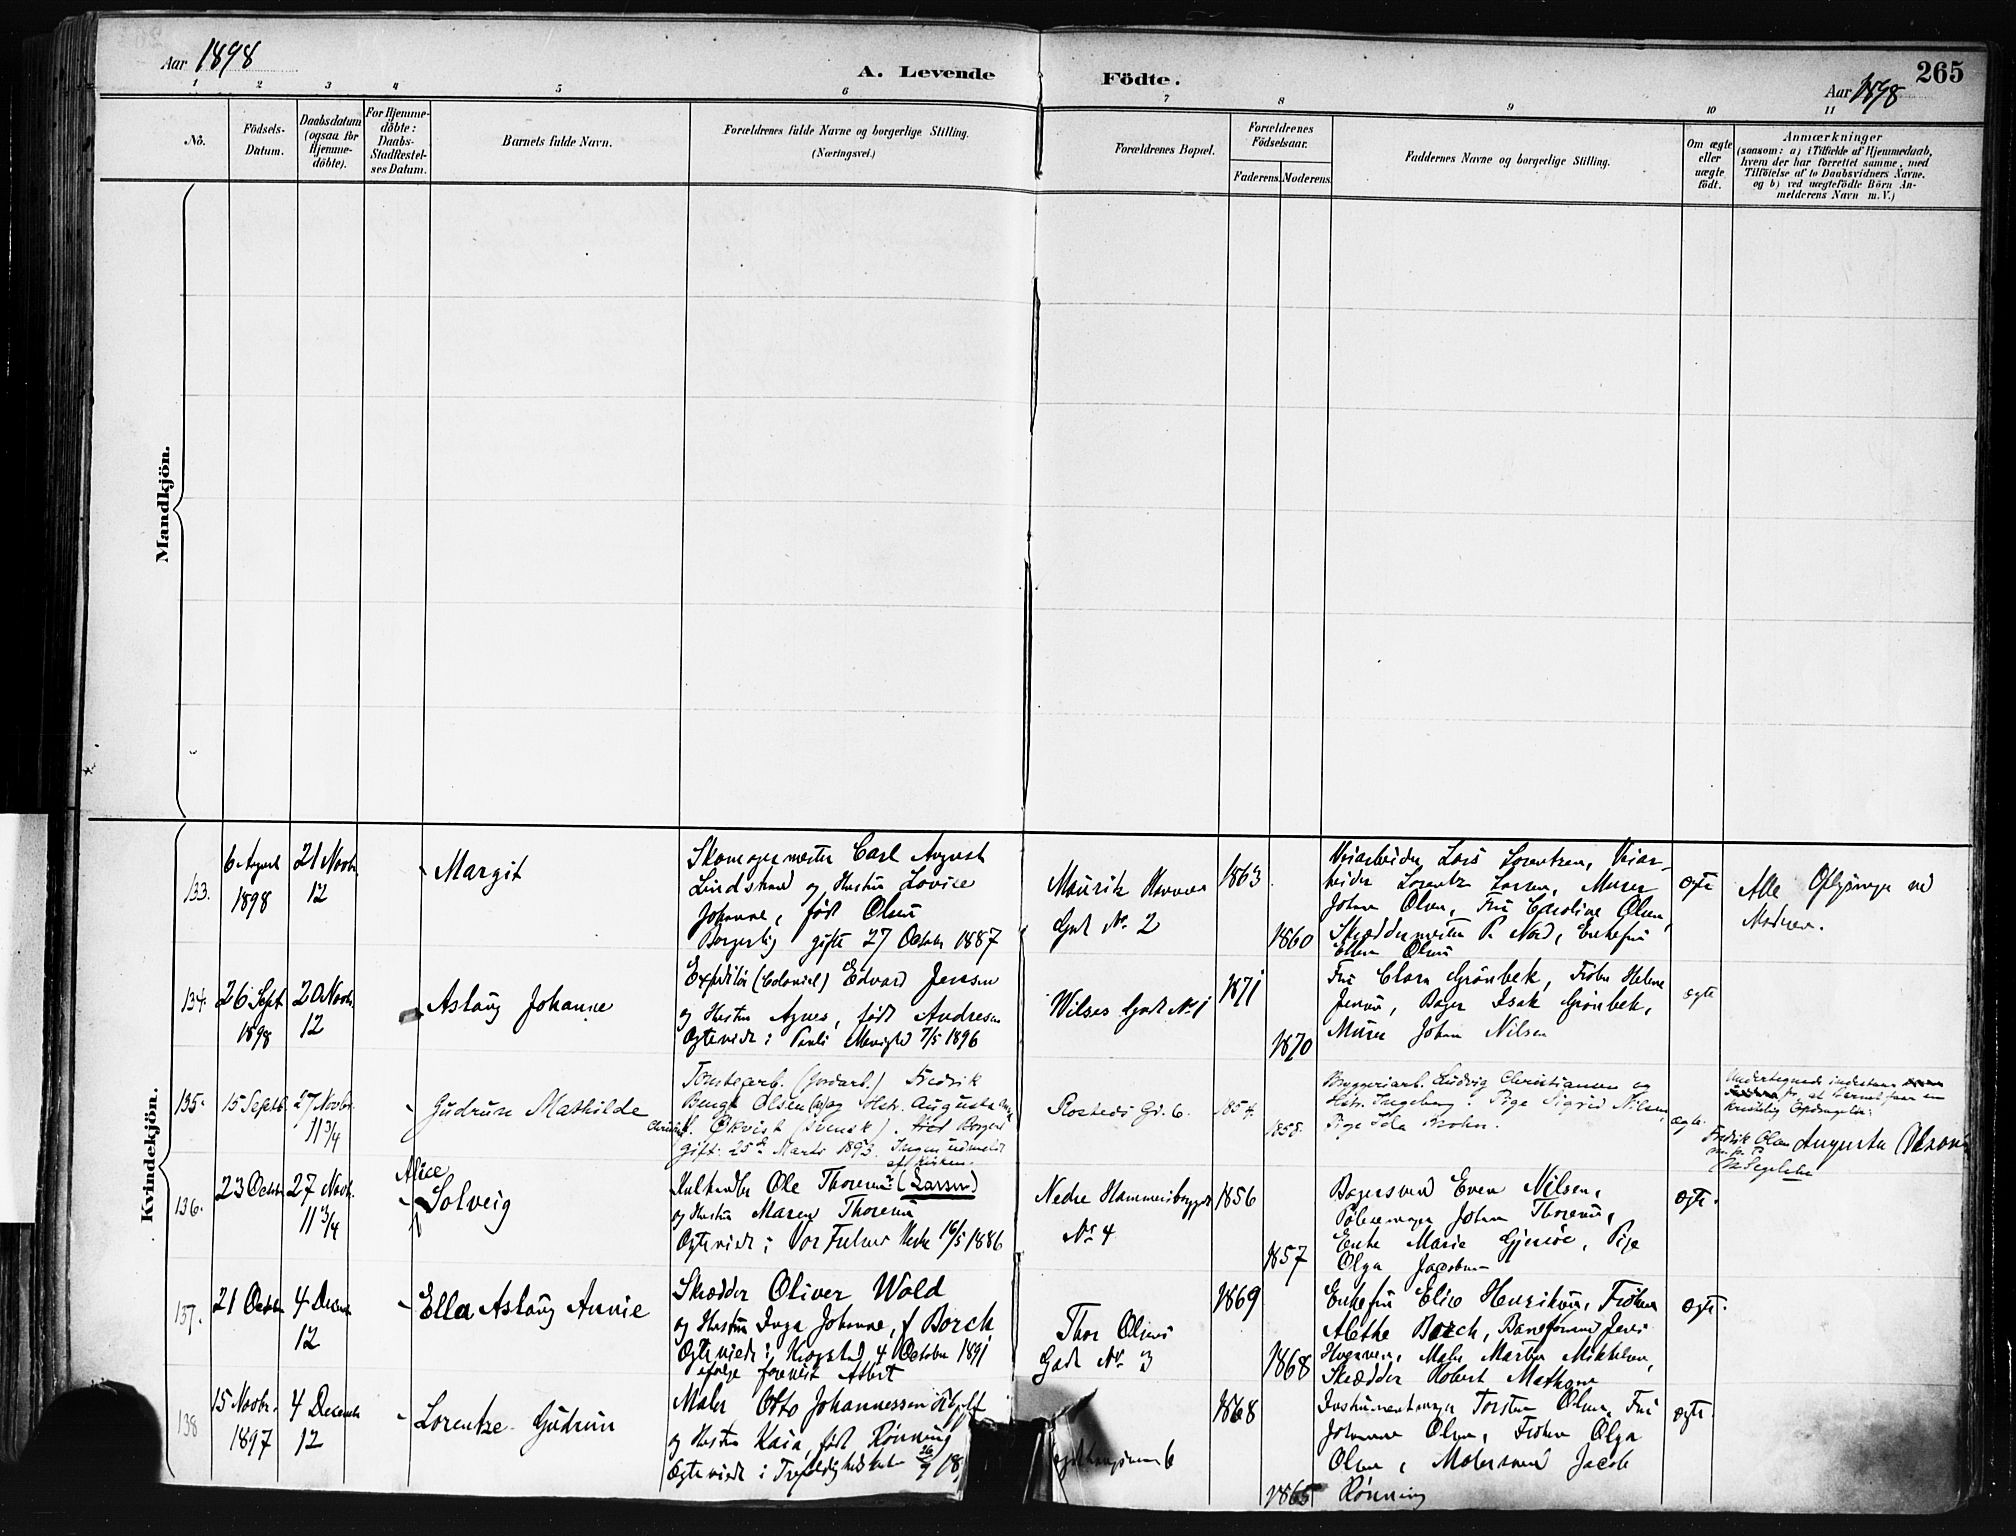 Aar 1898
A. Levende Födte.
265
Aar 1898
1 2 3 4 5 6 7 8 9 10 11
No.
Födsels-
Datum.
Daabsdatum
(ogsaa for
Hjemme-
döbte).
For Hjemme-
döbte:
Daabs-
Stadfestel-
ses Datum.
Barnets fulde Navn.
Forældrenes fulde Navne og borgerlige Stilling.
(Næringsvei.)
Forældrenes Bopæl.
Forældrenes
Födselsaar.
Faderens. Moderens.
Faddernes Navne og borgerlige Stilling.
Om ægte
eller
uægte
födt.
Anmærkninger
(saasom: a) i Tilfælde af Hjemmedaab,
hvem der har forrettet samme, med
Tilföielse af to Daabsvidners Navne.
og b) ved uægtefödte Börn An-
melderens Navn m. V.)
Mandkjön.
Kvindekjön.
133.
6 August
1898
21 Novbr.
12
Margit
Skomagermester Carl August
Lindstrand og Hustru Lovise
Johanne, født Olsen
Borgerlig gifte 27 October 1887
Maurits Hansens
Gade No. 2
1863
1860
Lars Lorentzen,
Lorentz Larsen, Murer
Johan Olsen, Fru Caroline Olsen,
Skræddermester P. Nord, Enkefru
Ellen Olsen
ægte
Alle Oplysninger ved
Moderen.
134.
26 Sept.
1898
20 Novbr.
12
Aslaug Johanne
Expeditør (Colonial) Edvard Jensen
og Hustru Agnes, født Andresen
Ægteviede i Pauli Menighed 7/5 1896
Wilses Gade No. 1
1871
1870
Fru Clara Grønbek, Frøken Helene
Jensen, Bager Isak Grønbek,
Murer Johan Nilsen
ægte
135.
15 Septb.
27 Novbr.
11 3/4
Gudrun Mathilde
Tomtearb. (Jordarb.) Fredrik
Bengt Olsen og Hstr. Augusta
Ekvist (svensk). Borgerl.
Gift: 25de Marts 1893. Ingen udmeldt
af Kirken.
Rosteds Gd. 6.
1854.
1858.
Bryggeriarb. Ludvig Christiansen og
Hstr. Ingeborg. Pige Sigrid Nilsen,
Pige Ida Krohn.
ægte.
Undertegnede indestaar
for, at Barnet faar en
kristelig Opdragelse:
Fredrik Olsen Augusta Olson
m. p. P.
136.
23 Octbr.
27 Novb.
11 3/4
Alice
Solveig
Kulhandler Ole Thoresen (Larsen)
og Hustru Maren Thoresen
Ægteviede i Vor Frelsers Kirke 16/5 1886
Nedre Hammersborggd.
No. 4
1856
1857
Bagersvend Even Nilsen,
Pølsemager Johan Thoresen,
Enke Marie Gjersøe, Pige
Olga Jacobsen
ægte.
137.
21 Octbr.
4 Decem
12
Ella Aslaug Annie
Skrædder Oliver Wold
og Hustru Inga Johanne, f. Borch
Ægteviede i Krogstad 4 October 1891
ifølge forevist Attest
Thor Olsens
Gade No. 3
1869
1868
Enkefru Elise Henriksen, Frøken
Alethe Borch, Baneformand Jens
Maler Martin Mikkelsen,
Skrædder Robert Mathane
ægte.
138
15 Novbr.
1897
4 December
12
Lorentze Gudrun
Maler Otto Johannessen
og Hustru Kaia, født Rønning
Ægteviede i Trefoldighedskirken 26/9 18
6
1868
1865
Instrumentmager Torsten Olsen, Fru
Johanne Olsen, Frøken Olga
Olsen, Malersvend Jacob
Rønning
ægte.